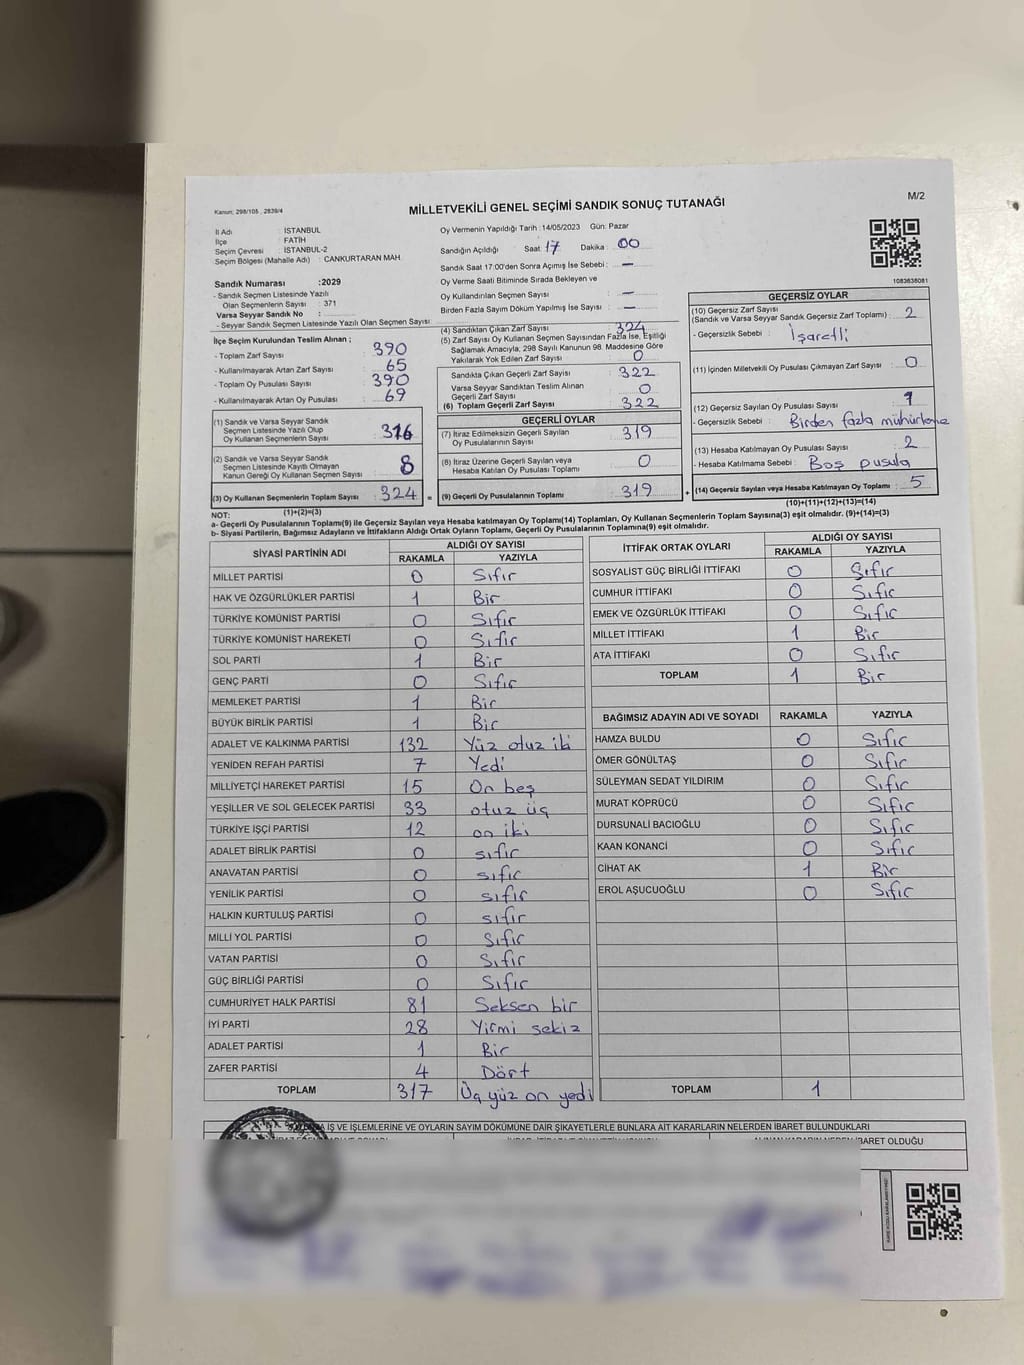 Kanun: 298/105 , 2839/4
MİLLETVEKİLİ GENEL SEÇİMİ SANDIK SONUÇ TUTANAĞI
M/2
İl Adı : İSTANBUL
İlçe : FATİH
Seçim Çevresi : İSTANBUL-2
Seçim Bölgesi (Mahalle Adı) : CANKURTARAN MAH.
Sandık Numarası :2029
- Sandık Seçmen Listesinde Yazılı
Olan Seçmenlerin Sayısı : 371
Varsa Seyyar Sandık No :
- Seyyar Sandık Seçmen Listesinde Yazılı Olan Seçmen Sayısı :
Oy Vermenin Yapıldığı Tarih : 14/05/2023 Gün: Pazar
Sandığın Açıldığı Saat 17 Dakika : 00
Sandık Saat 17:00'den Sonra Açılmış İse Sebebi : —
Oy Verme Saati Bitiminde Sırada Bekleyen ve
Oy Kullandırılan Seçmen Sayısı : —
Birden Fazla Sayım Döküm Yapılmış İse Sayısı : —
1083636081
İlçe Seçim Kurulundan Teslim Alınan ;
- Toplam Zarf Sayısı : 390
- Kullanılmayarak Artan Zarf Sayısı : 65
- Toplam Oy Pusulası Sayısı : 390
- Kullanılmayarak Artan Oy Pusulası : 69
(1) Sandık ve Varsa Seyyar Sandık
Seçmen Listesinde Yazılı Olup
Oy Kullanan Seçmenlerin Sayısı : 316
(2) Sandık ve Varsa Seyyar Sandık
Seçmen Listesinde Kayıtlı Olmayan
Kanun Gereği Oy Kullanan Seçmen Sayısı : 8
(3) Oy Kullanan Seçmenlerin Toplam Sayısı : 324
(1)+(2)=(3)
(4) Sandıktan Çıkan Zarf Sayısı : 324
(5) Zarf Sayısı Oy Kullanan Seçmen Sayısından Fazla İse, Eşitliği
Sağlamak Amacıyla, 298 Sayılı Kanunun 98. Maddesine Göre
Yakılarak Yok Edilen Zarf Sayısı : 0
Sandıkta Çıkan Geçerli Zarf Sayısı : 322
Varsa Seyyar Sandıktan Teslim Alınan
Geçerli Zarf Sayısı : 0
(6) Toplam Geçerli Zarf Sayısı : 322
GEÇERLİ OYLAR
(7) İtiraz Edilmeksizin Geçerli Sayılan
Oy Pusulalarının Sayısı : 319
(8) İtiraz Üzerine Geçerli Sayılan veya
Hesaba Katılan Oy Pusulası Toplamı : 0
= (9) Geçerli Oy Pusulalarının Toplamı : 319
GEÇERSİZ OYLAR
(10) Geçersiz Zarf Sayısı
(Sandık ve Varsa Seyyar Sandık Geçersiz Zarf Toplamı) : 2
- Geçersizlik Sebebi : İşaretli
(11) İçinden Milletvekili Oy Pusulası Çıkmayan Zarf Sayısı : 0
(12) Geçersiz Sayılan Oy Pusulası Sayısı : 1
- Geçersizlik Sebebi : Birden fazla mühürleme
(13) Hesaba Katılmayan Oy Pusulası Sayısı : 2
- Hesaba Katılmama Sebebi : Boş pusula
+ (14) Geçersiz Sayılan veya Hesaba Katılmayan Oy Toplamı : 5
(10)+(11)+(12)+(13)=(14)
NOT:
a- Geçerli Oy Pusulalarının Toplamı(9) ile Geçersiz Sayılan veya Hesaba katılmayan Oy Toplamı(14) Toplamları, Oy Kullanan Seçmenlerin Toplam Sayısına(3) eşit olmalıdır. (9)+(14)=(3)
b- Siyasi Partilerin, Bağımsız Adayların ve İttifakların Aldığı Ortak Oyların Toplamı, Geçerli Oy Pusulalarının Toplamına(9) eşit olmalıdır.
SİYASİ PARTİNİN ADI ALDIĞI OY SAYISI
RAKAMLA YAZIYLA
MİLLET PARTİSİ 0 Sıfır
HAK VE ÖZGÜRLÜKLER PARTİSİ 1 Bir
TÜRKİYE KOMÜNİST PARTİSİ 0 Sıfır
TÜRKİYE KOMÜNİST HAREKETİ 0 Sıfır
SOL PARTİ 1 Bir
GENÇ PARTİ 0 Sıfır
MEMLEKET PARTİSİ 1 Bir
BÜYÜK BİRLİK PARTİSİ 1 Bir
ADALET VE KALKINMA PARTİSİ 132 Yüz otuz iki
YENİDEN REFAH PARTİSİ 7 Yedi
MİLLİYETÇİ HAREKET PARTİSİ 15 On beş
YEŞİLLER VE SOL GELECEK PARTİSİ 33 otuz üç
TÜRKİYE İŞÇİ PARTİSİ 12 on iki
ADALET BİRLİK PARTİSİ 0 sıfır
ANAVATAN PARTİSİ 0 sıfır
YENİLİK PARTİSİ 0 sıfır
HALKIN KURTULUŞ PARTİSİ 0 sıfır
MİLLİ YOL PARTİSİ 0 Sıfır
VATAN PARTİSİ 0 Sıfır
GÜÇ BİRLİĞİ PARTİSİ 0 Sıfır
CUMHURİYET HALK PARTİSİ 81 Seksen bir
İYİ PARTİ 28 Yirmi sekiz
ADALET PARTİSİ 1 Bir
ZAFER PARTİSİ 4 Dört
TOPLAM 317 Üç yüz on yedi
İTTİFAK ORTAK OYLARI ALDIĞI OY SAYISI
RAKAMLA YAZIYLA
SOSYALİST GÜÇ BİRLİĞİ İTTİFAKI 0 Sıfır
CUMHUR İTTİFAKI 0 Sıfır
EMEK VE ÖZGÜRLÜK İTTİFAKI 0 Sıfır
MİLLET İTTİFAKI 1 Bir
ATA İTTİFAKI 0 Sıfır
TOPLAM 1 Bir
BAĞIMSIZ ADAYIN ADI VE SOYADI RAKAMLA YAZIYLA
HAMZA BULDU 0 Sıfır
ÖMER GÖNÜLTAŞ 0 Sıfır
SÜLEYMAN SEDAT YILDIRIM 0 Sıfır
MURAT KÖPRÜCÜ 0 Sıfır
DURSUNALİ BACIOĞLU 0 Sıfır
KAAN KONANCİ 0 Sıfır
CİHAT AK 1 Bir
EROL AŞUCUOĞLU 0 Sıfır
TOPLAM 1
İŞ VE İŞLEMLERİNE VE OYLARIN SAYIM DÖKÜMÜNE DAİR ŞİKAYETLERLE BUNLARA AİT KARARLARIN NELERDEN İBARET BULUNDUKLARI
İBARET OLDUĞU